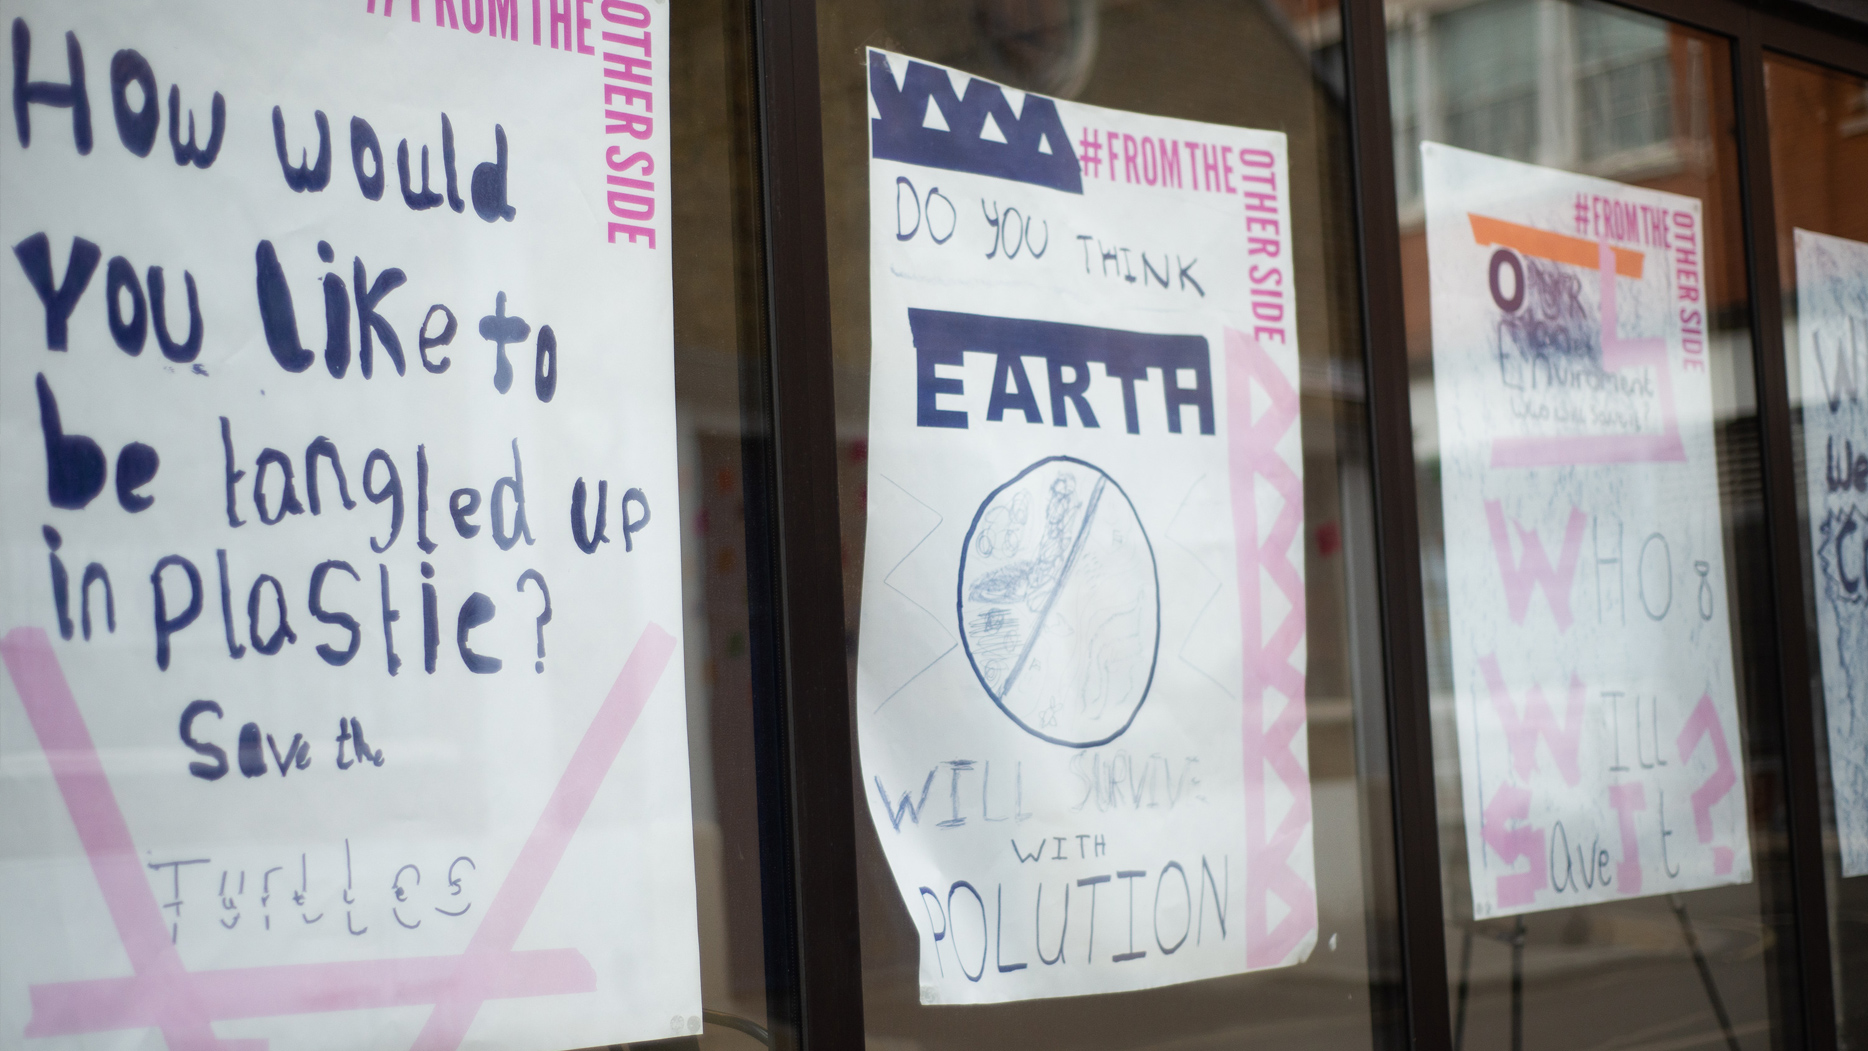 #FROMTHE
OTHER SIDE
How would
You like to
be tangled up
in plastic?
Save the
Turtles
#FROMTHE
OTHER SIDE
DO YOU THINK
EARTH
WILL SURVIVE
WITH
POLUTION
#FROMTHE
OTHER SIDE
OUR
Enviroment
who will save it?
WHO
WILL
Save It?
We